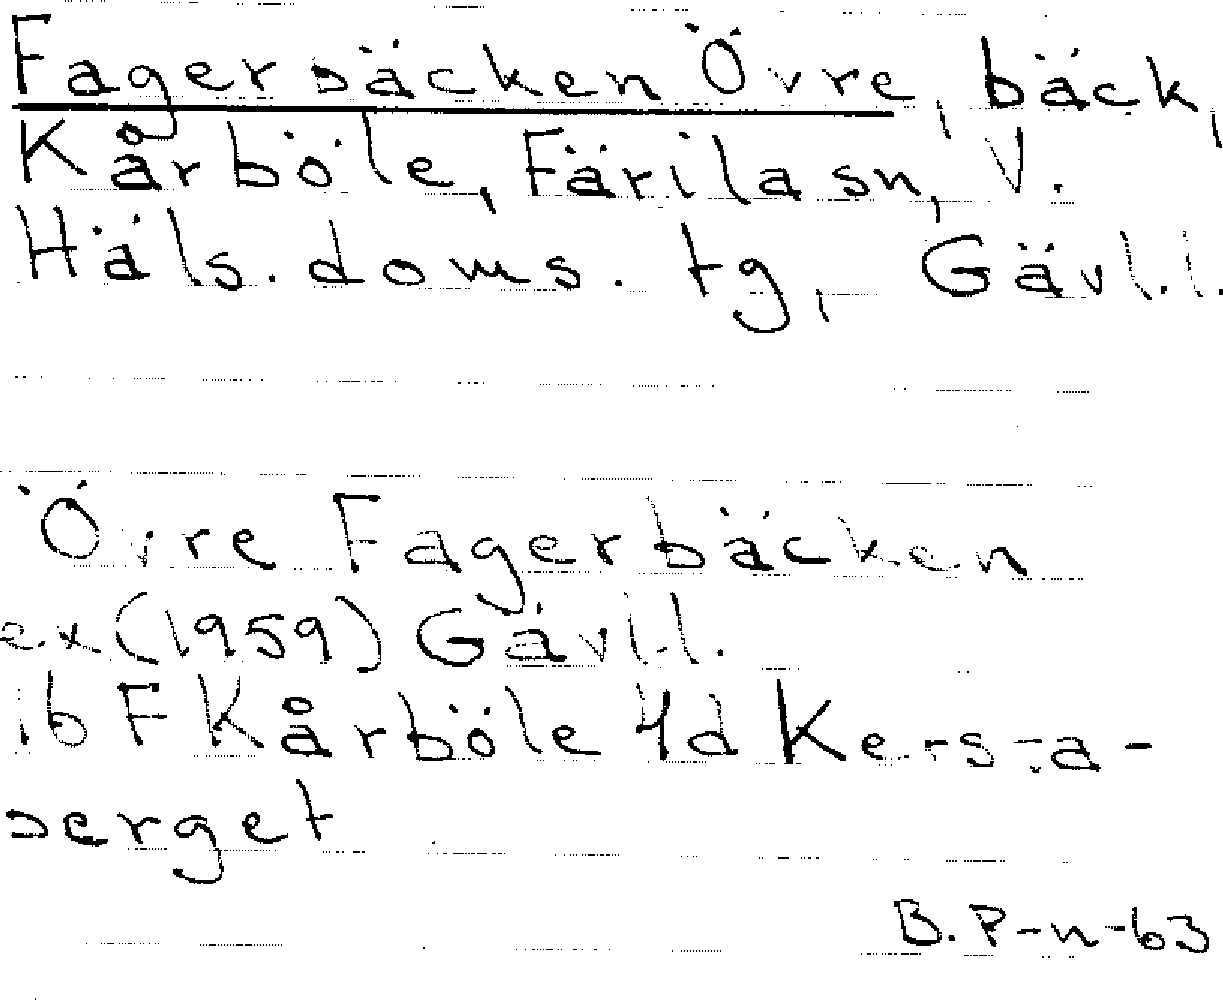 Fagerbäcken Övre, bäck,
Kårböle, Färila sn, V.
Häls. doms. tg, Gävl.l.
Övre Fagerbäcken
ex (1959) Gävl.l.
16 F Kårböle 4d Kersta-
berget
B. P-n-63